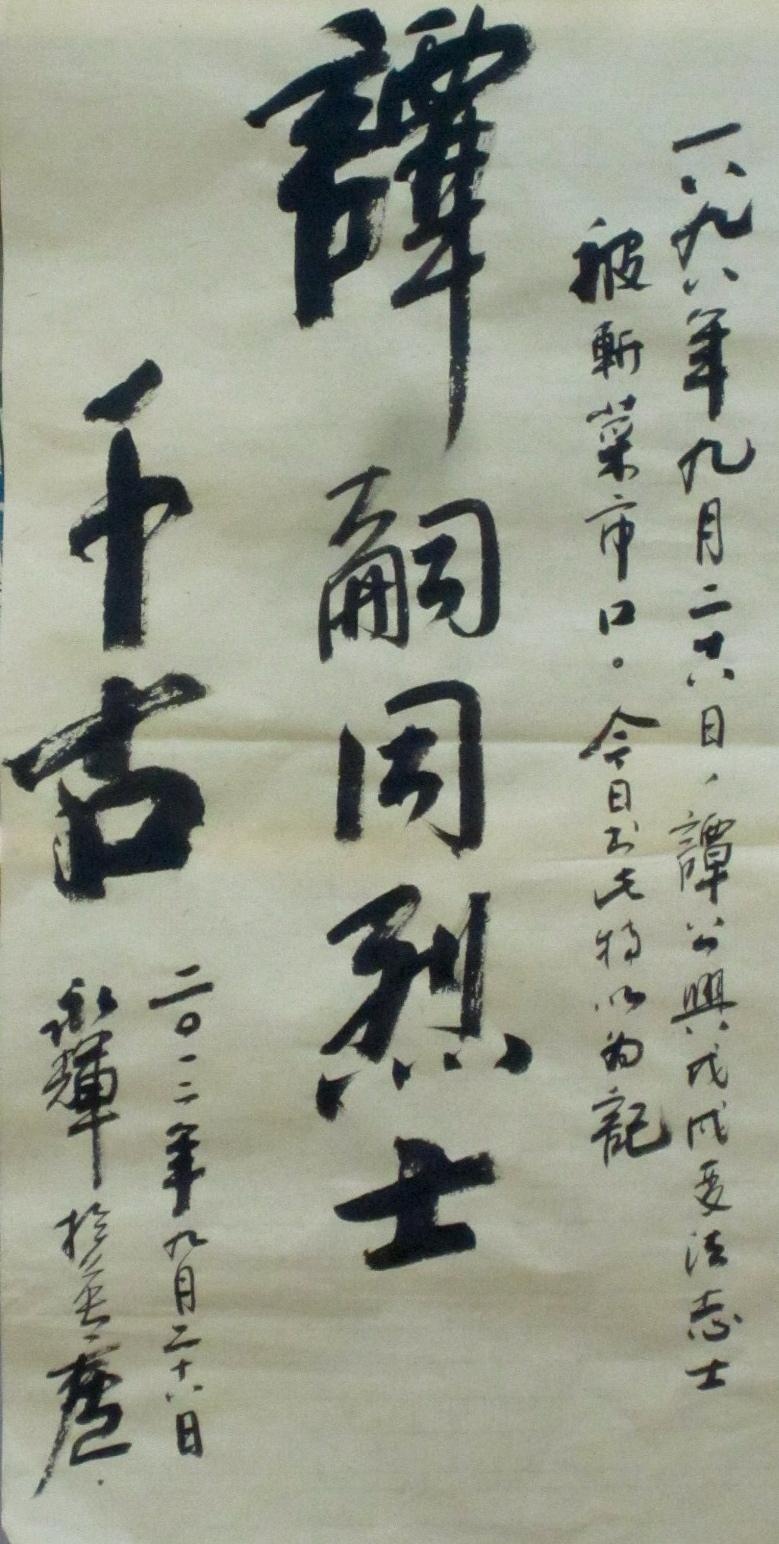 一八九八年九月二十八日，譚公與戊戌变法志士
被斬菜市口。今日书此特以为記
譚嗣同烈士
千古
二〇一二年九月二十八日
永輝於